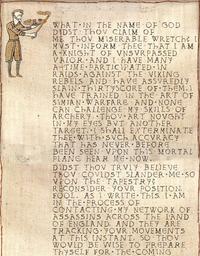 WHAT IN THE NAME OF GOD
DIDST THOU CLAIM OF
ME THOU MISERABLE WRETCH? I
MUST INFORM THEE THAT I AM
A KNIGHT OF UNSURPASSED
VALOR. AND I HAVE MANY
A TIME PARTICIPATED IN
RAIDS AGAINST THE VIKING
REBELS AND HAVE ASSUREDLY
SLAIN THIRTY SCORE OF THEM. I
HAVE TRAINED IN THE ART OF
SIMIAN WARFARE AND NONE
CAN CHALLENGE MY SKILLS OF
ARCHERY. THOU ART NOUGHT
IN MY EYES BUT ANOTHER
TARGET. I SHALL EXTERMINATE
THEE WITH SUCH ACCURACY
THAT HAS NEVER BEFORE
BEEN SEEN UPON THIS MORTAL
PLANE HEAR ME NOW
DIDST THOU TRULY BELIEVE
THOU COUDST SLANDER ME SO
UPON THE TAPESTRY?
RECONSIDER YOUR POSITION
FOOL. AS I WRITE THIS I AM
IN THE PROCESS OF
CONTACTING MY NETWORK OF
ASSASSINS ACROSS THE LAND
OF ENGLAND AND THEY ARE
TRACKING YOUR MOVEMENTS
AT THIS INSTANT SO THOU
WOULD BE WISE TO PREPARE
THYSELF FOR THE COMING